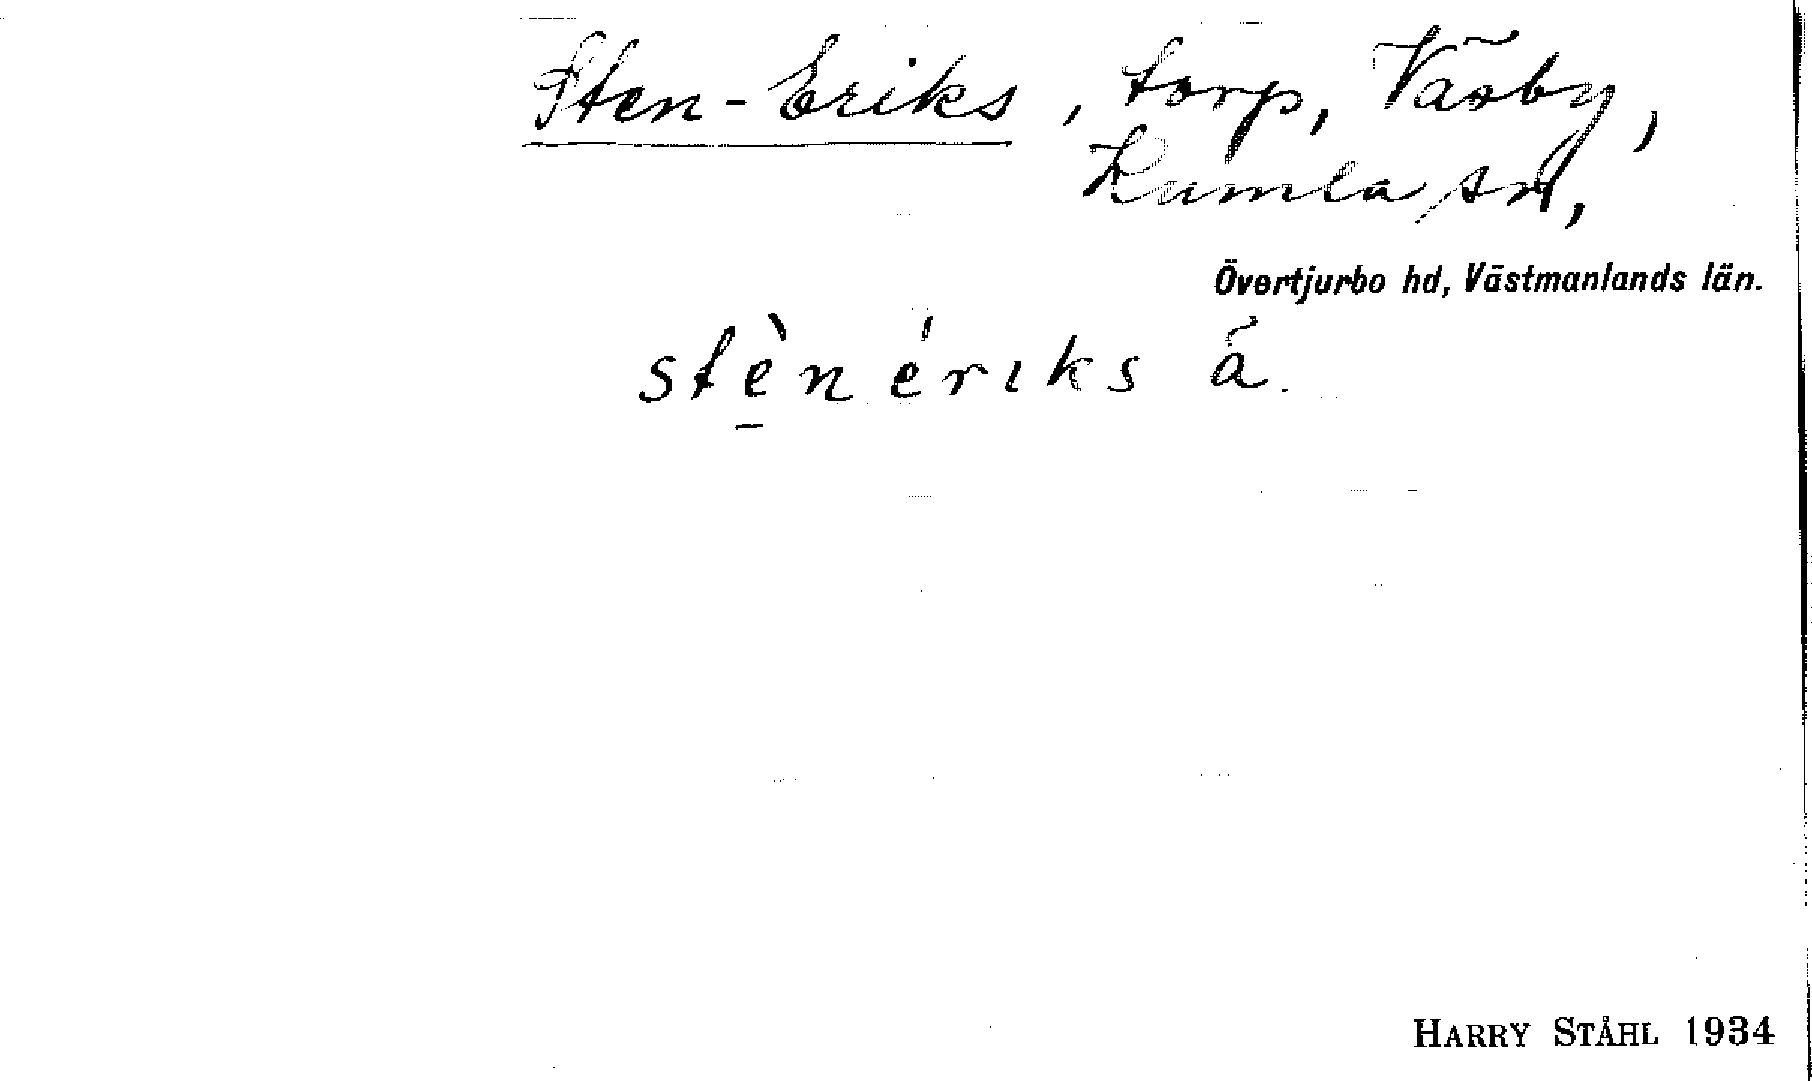 Sten-Eriks, torp, Väsby,
Kumla sn,
Övertjurbo hd, Västmanlands län.
stè̱n érıks á.
HARRY STÅHL 1934